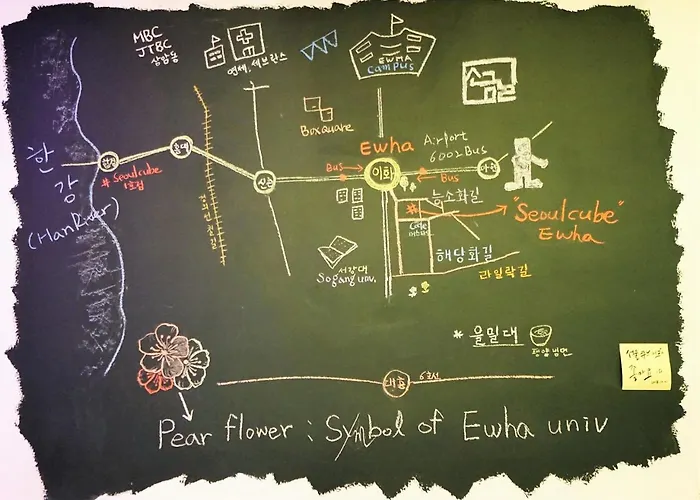 MBC
JTBC
상암동
연세.세브란스
EWHA
Campus
Boxquare
Ewha
Airport
6002 Bus
한
강
(Han River)
합정
홍대
신촌
이화
아현
Bus
Bus
# Seoulcube
1호점
경의선 철길
능소화길
#
Cafe
"Seoulcube"
Ewha
서강대
Sogang univ.
해당화길
라일락길
* 을밀대
평양냉면
대흥
6호선
Pear flower : Symbol of Ewha univ